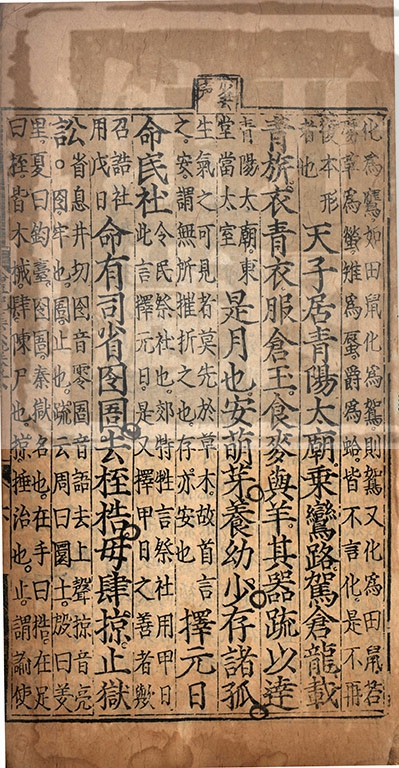 化為鴽如田鼠化為鴽則鴽又化為田鼠若
腐草為螢雉為蜃爵為蛤皆不言化是不再
復本形
者也
天子居青陽太廟乘鸞路駕倉龍載
青旂衣青衣服倉玉食麥與羊其器疏以達
青陽太廟東
堂當太室
是月也安萌芽養幼少存諸孤
生氣之可見者莫先於草木故首言
之安謂無所摧折之也存亦安也
擇元日
命民社
令民祭社也郊特牲言祭社用甲日
此言擇元日是又擇甲日之善者歟
召誥社
用戊日
命有司省囹圄去桎梏毋肆掠止獄
訟
省息井切囹音零圄音語去上聲掠音亮
囹牢也圄止也疏云周曰圜土殷曰羑
里夏曰鈞臺囹圄秦獄名也在手曰梏在足
曰桎皆木械肆陳尸也掠捶治也止謂諭使